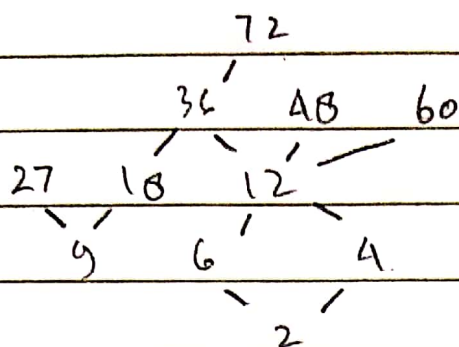 72
36 48 60
27 18 12
9 6 4
2